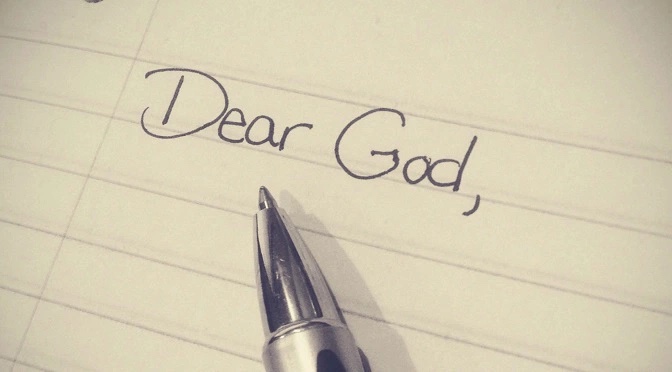 Dear God,